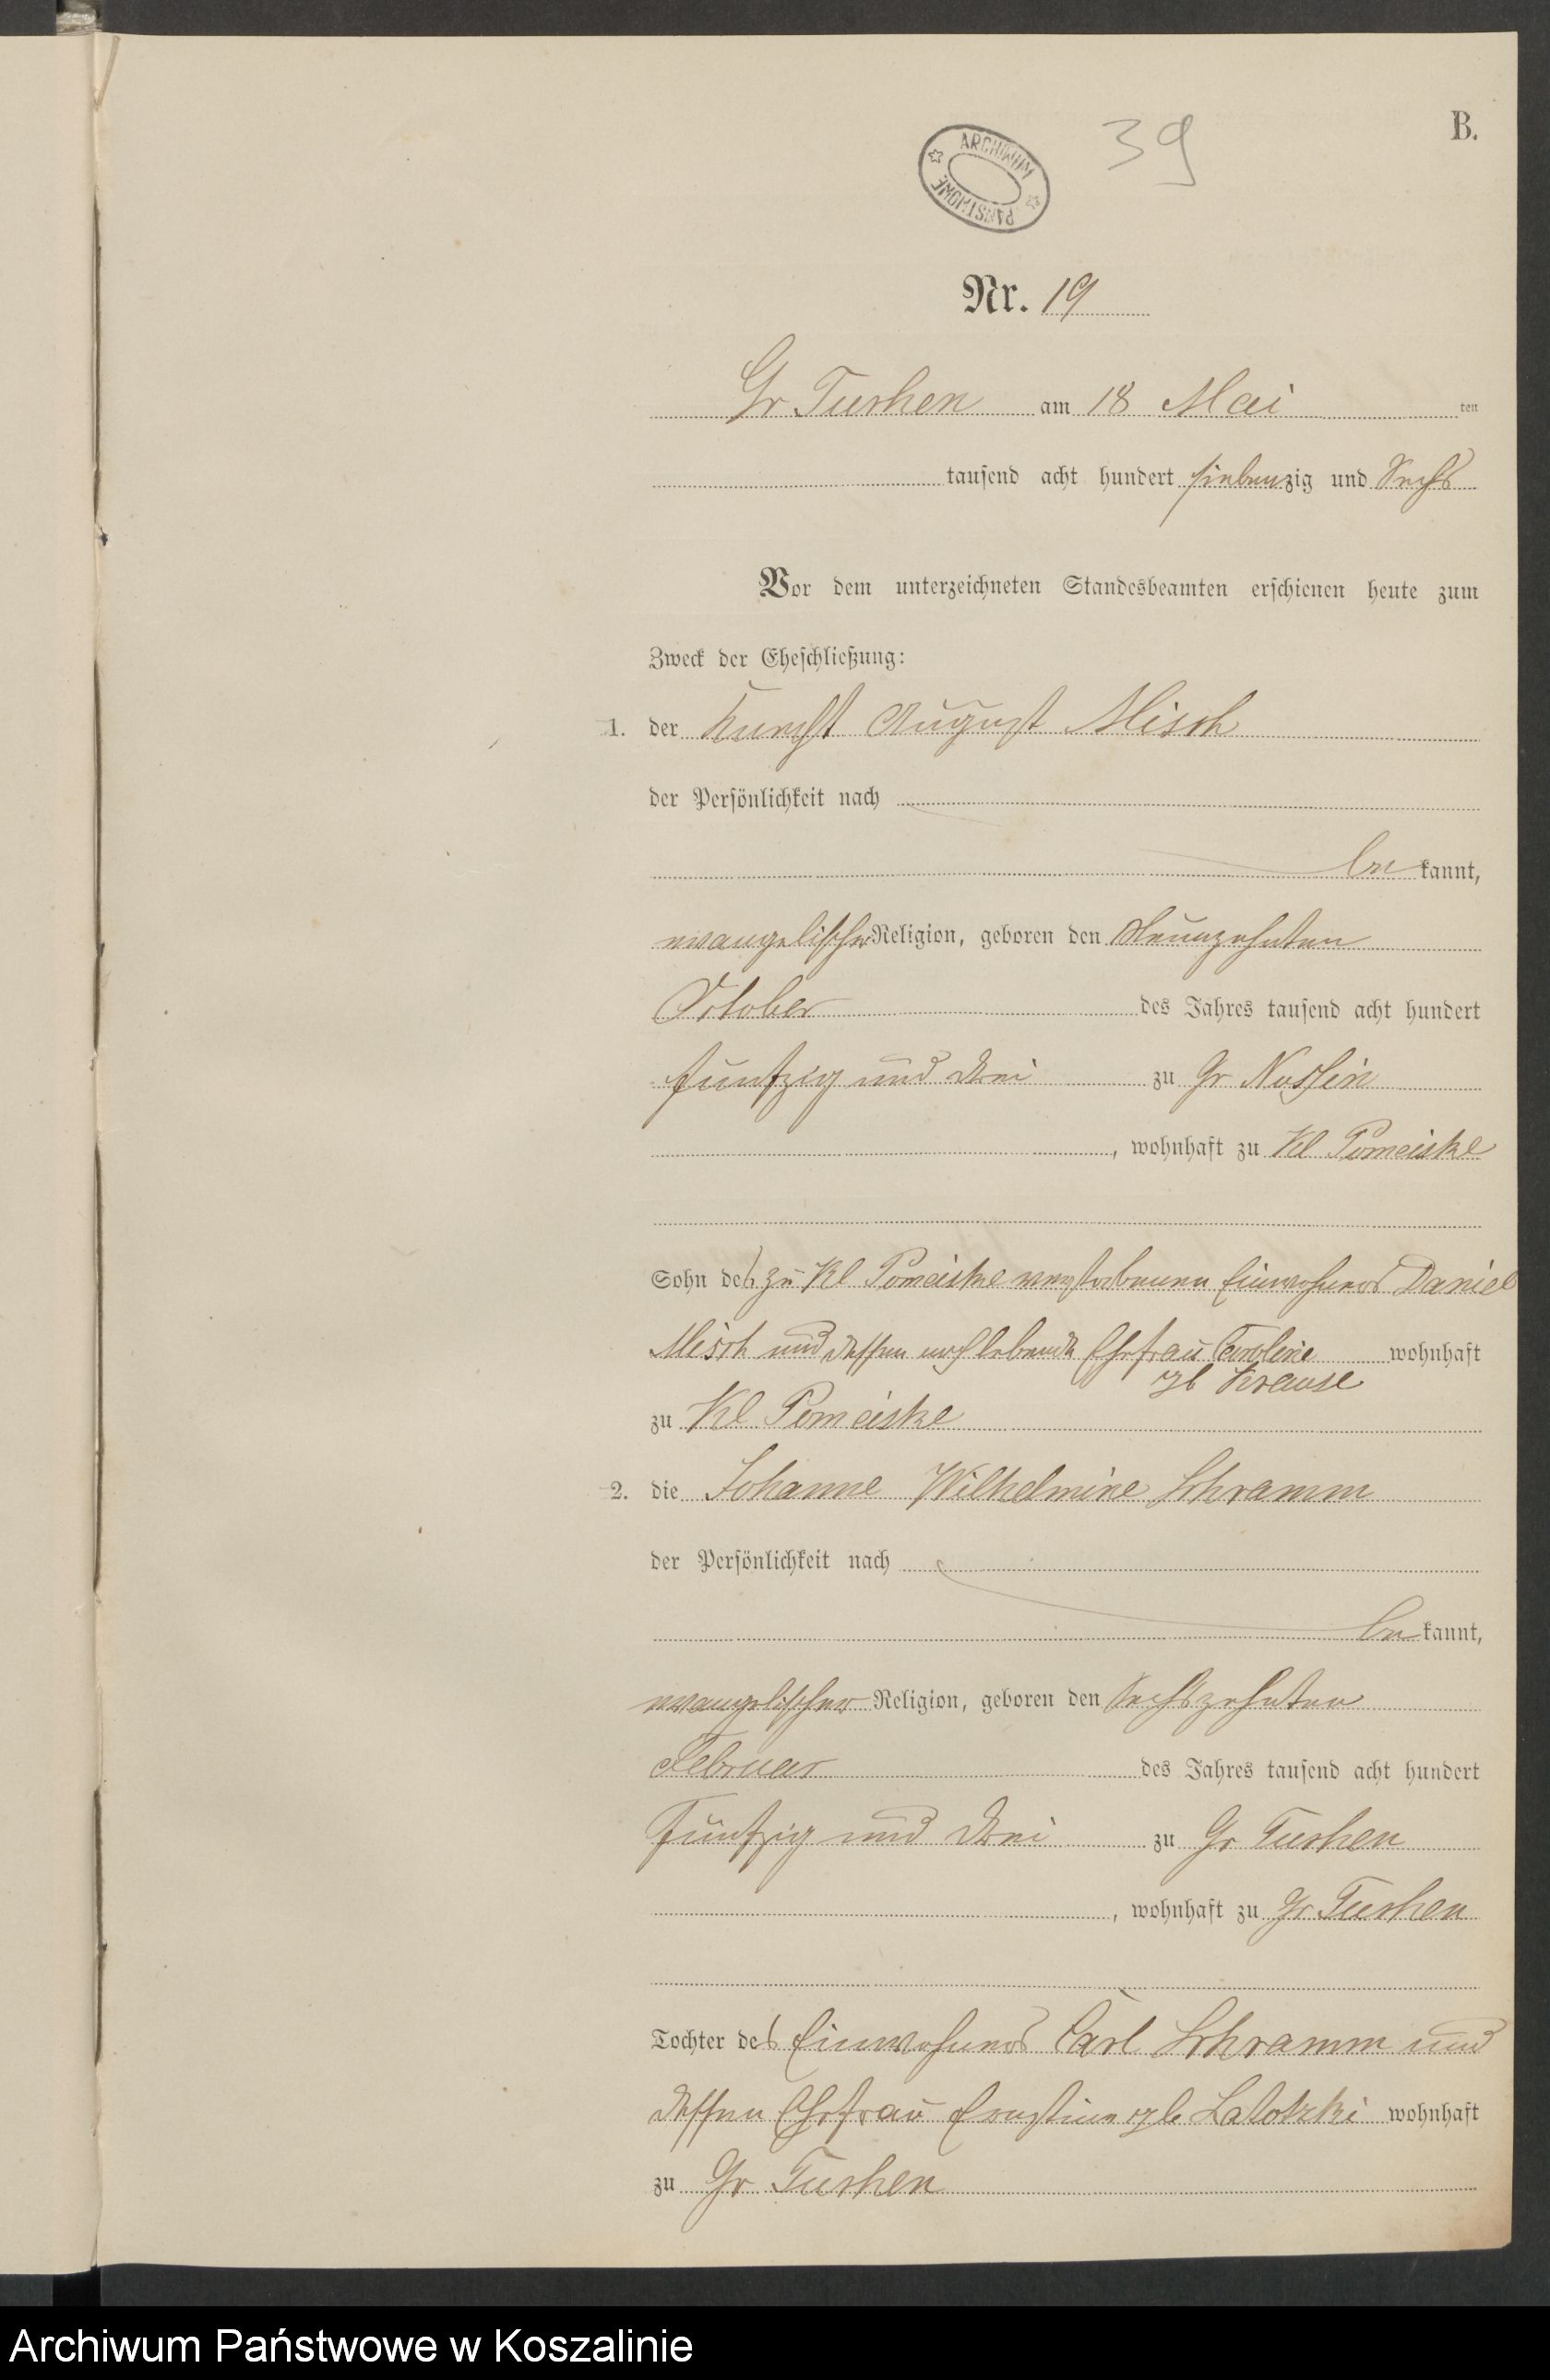 B.
39
ARCHIWUM PAŃSTWOWE
Nr. 19
Gr Tuchen am 18 Mai ten
tausend acht hundert siebenzig und Sechs
Vor dem unterzeichneten Standesbeamten erschienen heute zum
Zweck der Eheschließung:
1. der Knecht August Misch
der Persönlichkeit nach
be kannt,
evangelischer Religion, geboren den Neunzehnten
October des Jahres tausend acht hundert
fünfzig und drei zu Gr Nossin
, wohnhaft zu Kl Pomeiske
Sohn des zu Kl Pomeiske verstorbenen Einwohners Daniel
Misch und dessen noch lebende Ehefrau Caroline wohnhaft
gb Krause
zu Kl Pomeiske
2. die Johanne Wilhelmine Schramm
der Persönlichkeit nach
be kannt,
evangelischer Religion, geboren den Sechszehnten
Februar des Jahres tausend acht hundert
Fünfzig und drei zu Gr Tuchen
, wohnhaft zu Gr Tuchen
Tochter des Einwohners Carl Schramm und
dessen Ehefrau Ernstine gb Latotzki wohnhaft
zu Gr Tuchen
Archiwum Państwowe w Koszalinie